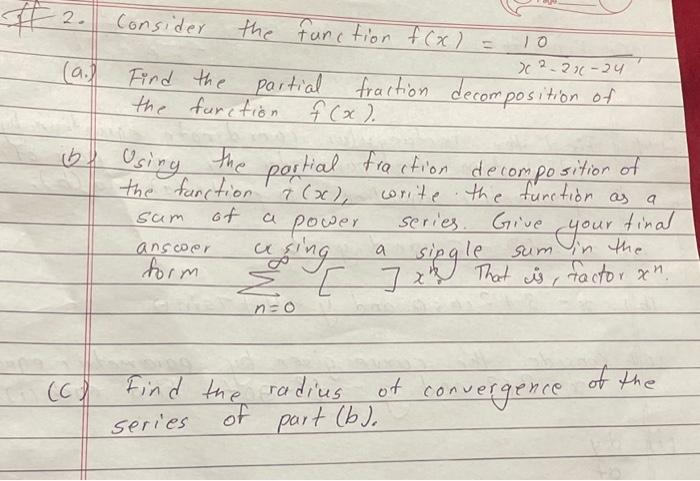 # 2. Consider the function f(x) = 10 / x² - 2x - 24,
(a.) Find the partial fraction decomposition of
the function f(x).
(b) Using the partial fraction decomposition of
the function f(x), write the function as a
sum of a power series. Give your final
answer using a single sum in the
form ∞ Σ n=0 [ ] xⁿ. That is, factor xⁿ.
(c) Find the radius of convergence of the
series of part (b).